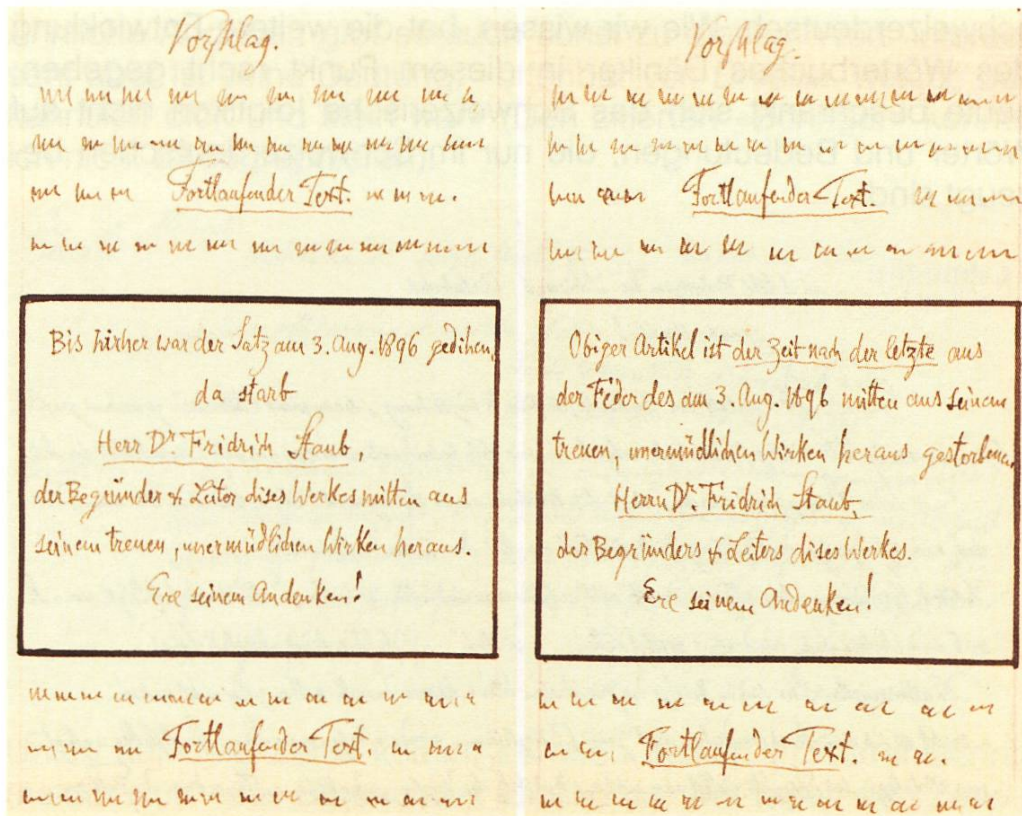 Vorschlag.
Fortlaufender Text.
Bis hieher war der Satz am 3. Aug. 1896 gedihen,
da starb
Herr Dr. Fridrich Staub,
der Begründer & Leiter dises Werkes mitten aus
seinem treuen, unermüdlichen Wirken heraus.
Ere seinem Andenken!
Fortlaufender Text.
Vorschlag.
Fortlaufender Text.
Obiger Artikel ist der Zeit nach der letzte aus
der Feder des am 3. Aug. 1896 mitten aus seinem
treuen, unermüdlichen Wirken heraus gestorbenen
Herrn Dr. Fridrich Staub,
des Begründers & Leiters dises Werkes.
Ere seinem Andenken!
Fortlaufender Text.